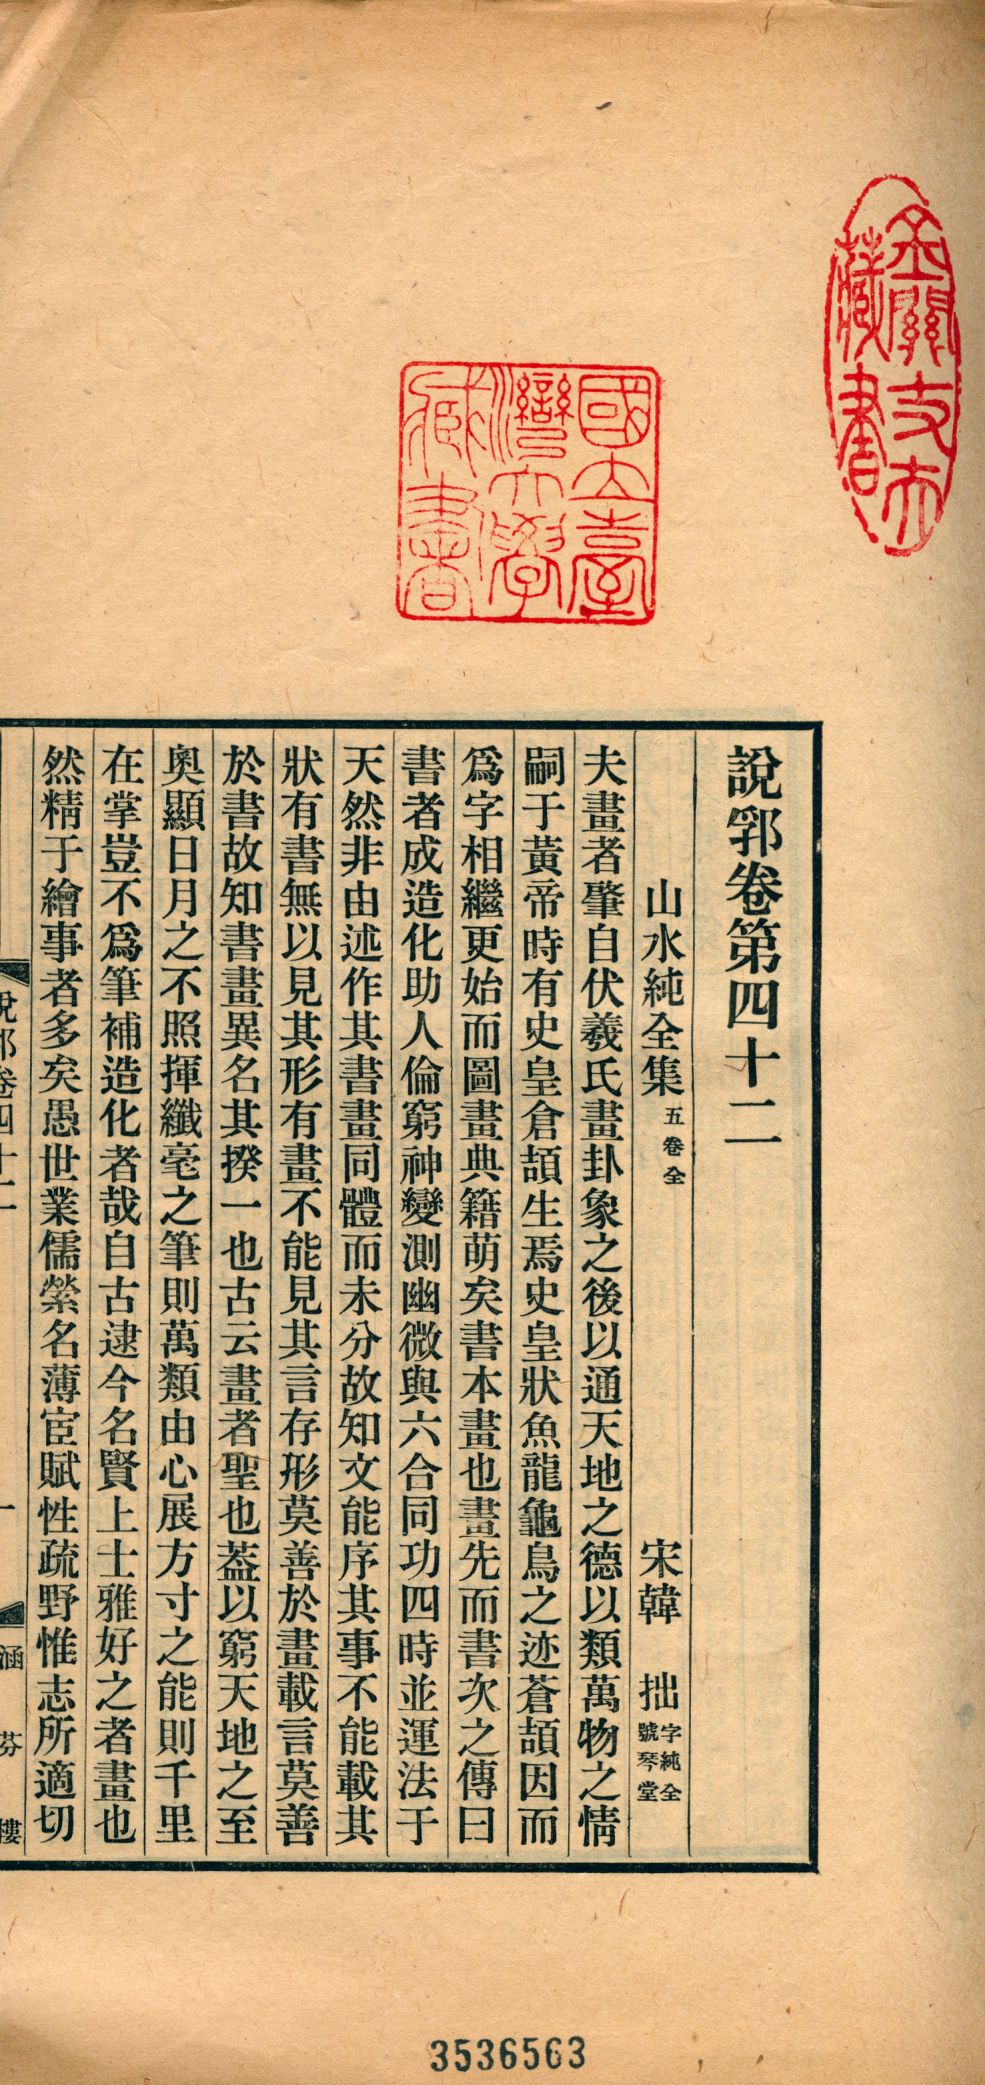 說郛卷第四十二
山水純全集 五卷全 宋韓 拙 字純全 號琴堂
夫畫者肇自伏羲氏畫卦象之後以通天地之德以類萬物之情
嗣于黃帝時有史皇倉頡生焉史皇狀魚龍龜鳥之迹蒼頡因而
爲字相繼更始而圖畫典籍萌矣書本畫也畫先而書次之傳曰
書者成造化助人倫窮神變測幽微與六合同功四時並運法于
天然非由述作其書畫同體而未分故知文能序其事不能載其
狀有書無以見其形有畫不能見其言存形莫善於畫載言莫善
於書故知書畫異名其揆一也古云畫者聖也葢以窮天地之至
奧顯日月之不照揮纖毫之筆則萬類由心展方寸之能則千里
在掌豈不爲筆補造化者哉自古逮今名賢上士雅好之者畫也
然精于繪事者多矣愚世業儒縈名薄宦賦性疏野惟志所適切
說郛卷四十二
一
涵芬樓
國立臺灣大學藏書
藏書
3536563